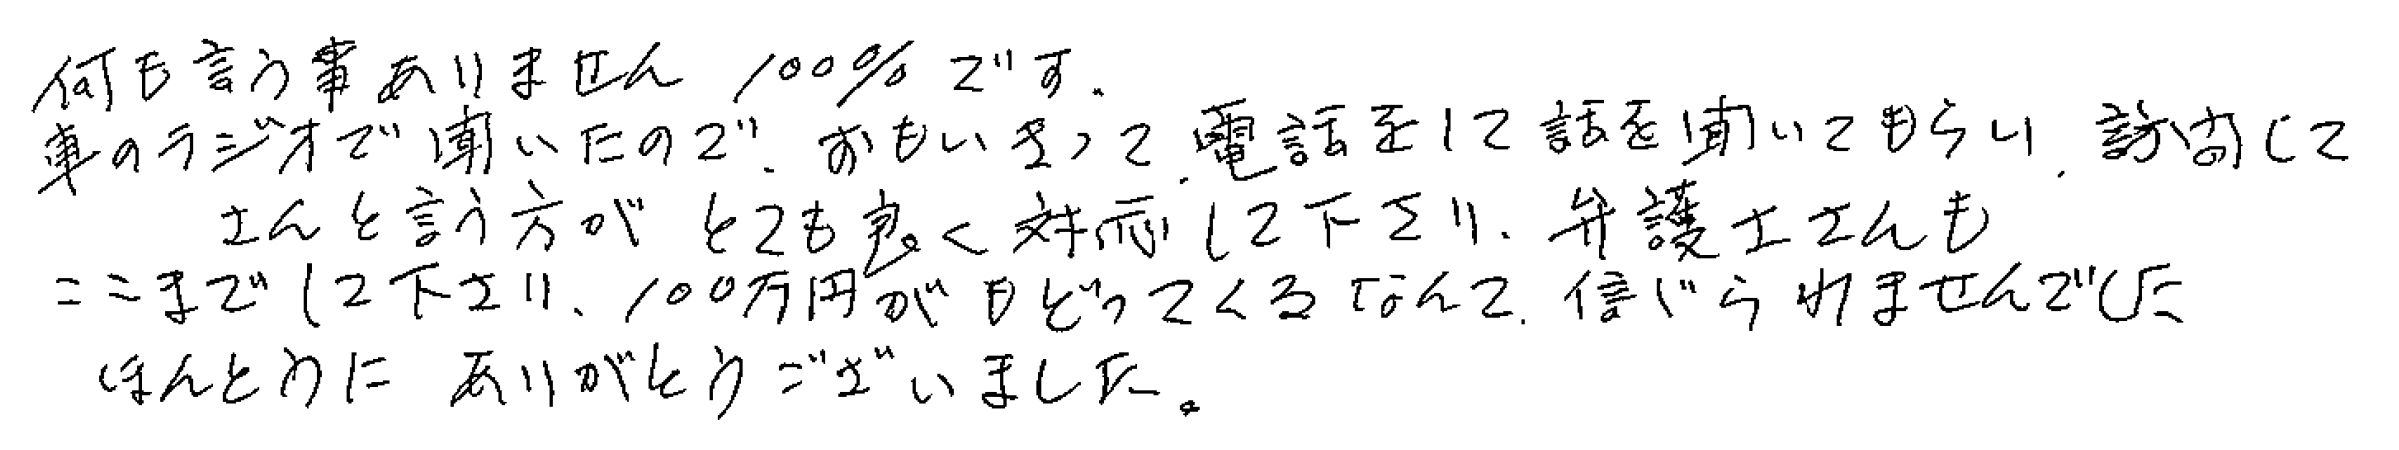 何も言う事ありません 100%です.
車のラジオで聞いたので、おもいきって、電話をして話を聞いてもらい、訪問して
さんと言う方がとても良く対応して下さり、弁護士さんも
ここまでして下さり、100万円がもどってくるなんて、信じられませんでした
ほんとうに ありがとうございました。